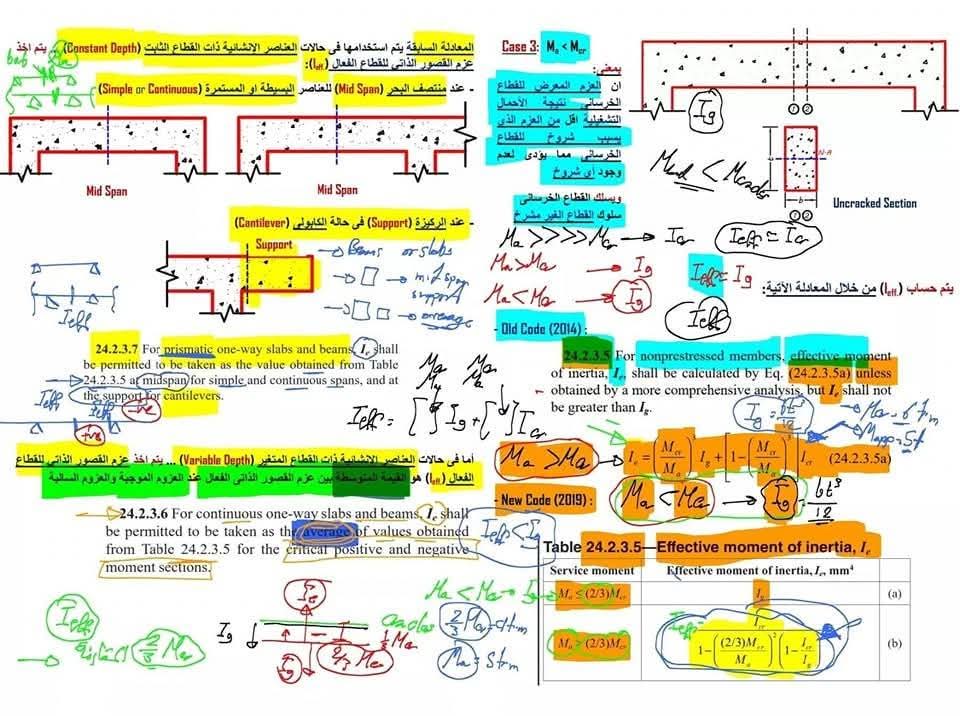 المعادلة السابقة يتم استخدامها فى حالات العناصر الانشائية ذات القطاع الثابت (Constant Depth) ... يتم اخذ
عزم القصور الذاتي للقطاع الفعال (Ieff):
- عند منتصف البحر (Mid Span) للعناصر البسيطة او المستمرة (Simple or Continuous)
Mid Span
Mid Span
- عند الركيزة (Support) فى حالة الكابولى (Cantilever)
Support
Beams or slabs
mid span
support
average
Ieff
24.2.3.7 For prismatic one-way slabs and beams, Ie shall
be permitted to be taken as the value obtained from Table
24.2.3.5 at midspan for simple and continuous spans, and at
the support for cantilevers.
Ieff
Ieff
+ve
-ve
Ieff = [ ] Ig + [ ] Icr
أما فى حالات العناصر الانشائية ذات القطاع المتغير (Variable Depth) ... يتم اخذ عزم القصور الذاتي للقطاع
الفعال (Ieff) هو القيمة المتوسطة بين عزم القصور الذاتي الفعال عند العزوم الموجبة والعزوم السالبة
24.2.3.6 For continuous one-way slabs and beams, Ie shall
be permitted to be taken as the average of values obtained
from Table 24.2.3.5 for the critical positive and negative
moment sections.
Ieff < Ig
Ieff
2/3 Mcr
Ig
Ie
Ig
2/3 Mcr
Case 3: Ma < Mcr
بمعنى:
ان العزم المعرض للقطاع
الخرسانى نتيجة الأحمال
التشغيلية اقل من العزم الذى
يسبب شروخ للقطاع
الخرسانى مما يؤدى لعدم
وجود اى شروخ
ويسلك القطاع الخرسانى
سلوك القطاع الغير مشرخ
Ig
① ②
N-A
b
① ②
Uncracked Section
Ma >>>> Mcr → Icr
Ieff = Icr
Ma > Mcr → Ig
Ma < Mcr → Ig
Ieff = Ig
يتم حساب (Ieff) من خلال المعادلة الآتية:
Ieff
- Old Code (2014) :
24.2.3.5 For nonprestressed members, effective moment
of inertia, Ie, shall be calculated by Eq. (24.2.3.5a) unless
obtained by a more comprehensive analysis, but Ie shall not
be greater than Ig.
Ig = bt³/12
Ma > Mcr → Ie = (Mcr/Ma)³ Ig + [1 − (Mcr/Ma)³] Icr (24.2.3.5a)
Ma < Mcr → Ig = bt³/12
- New Code (2019) :
Table 24.2.3.5—Effective moment of inertia, Ie
Service moment Effective moment of inertia, Ie, mm⁴
Ma ≤ (2/3)Mcr Ig (a)
Ma > (2/3)Mcr Icr / [1 − ((2/3)Mcr/Ma)² (1 − Icr/Ig)] (b)